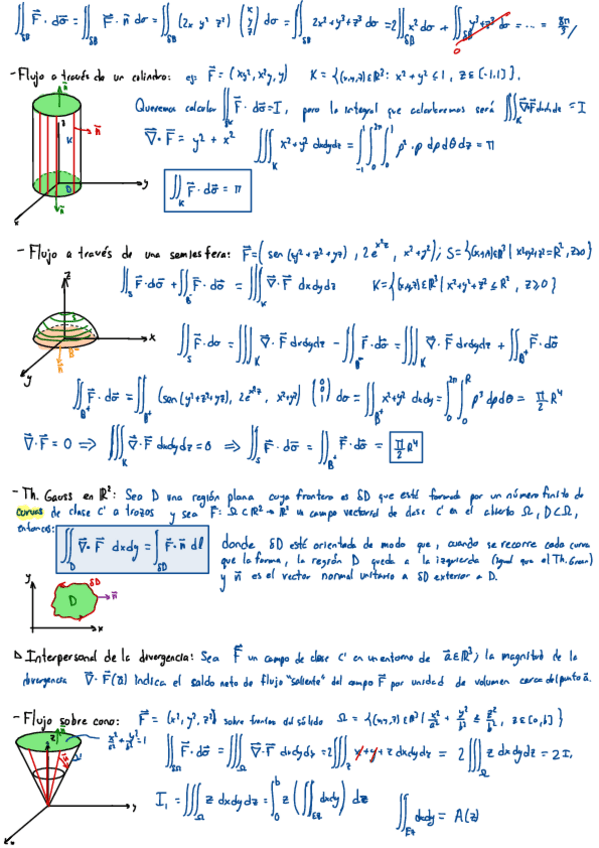 ∬_{δB} F⃗·dσ̄ = ∬_{δB} F⃗·n̄ dσ = ∬_{δB} (2x y² z²) (x y z) dσ = ∬_{δB} 2x²+y³+z³ dσ = 2∬_{δB} x² dσ + ∬_{δB} y³+z³ dσ = ... = 8π/3
0
- Flujo a través de un cilindro: ej: F⃗ = (xy², x²y, y) K = {(x,y,z)∈ℝ³: x²+y² ≤ 1, z∈[-1,1]}.
Queremos calcular ∬_{δK} F⃗·dσ̄ = I, pero la integral que calcularemos será ∭_K ∇⃗·F⃗ dxdydz = I
∇⃗·F⃗ = y² + x² ∭_K x²+y² dxdydz = ∫_{-1}^{1} ∫_0^{2π} ∫_0^1 ρ²·ρ dρ dθ dz = π
∬_K F⃗·dσ̄ = π
n̄
K
n̄
D
y
n̄
x
- Flujo a través de una semiesfera: F⃗ = (sen(y²+z²+yz), 2e^{x²z}, x²+y²); S = {(x,y,z)∈ℝ³ | x²+y²+z² = R², z≥0}
∬_S F⃗·dσ̄ + ∬_{B⁻} F⃗·dσ̄ = ∭_K ∇⃗·F⃗ dxdydz K = {(x,y,z)∈ℝ³ | x²+y²+z² ≤ R², z≥0}
z
S
x
y
∬_S F⃗·dσ = ∭_K ∇⃗·F⃗ dxdydz - ∬_{B⁻} F⃗·dσ̄ = ∭_K ∇⃗·F⃗ dxdydz + ∬_{B⁺} F⃗·dσ̄
∬_{B⁺} F⃗·dσ̄ = ∬_{B⁺} (sen(y²+z²+yz), 2e^{x²z}, x²+y²) (0 0 1) dσ = ∬_{B⁺} x²+y² dxdy = ∫_0^{2π} ∫_0^R ρ³ dρdθ = π/2 R⁴
∇⃗·F = 0 ⇒ ∭_K ∇⃗·F⃗ dxdydz = 0 ⇒ ∬_S F⃗·dσ̄ = ∬_{B⁺} F⃗·dσ̄ = π/2 R⁴
- Th. Gauss en ℝ²: Sea D una región plana cuya frontera es δD que esté formada por un número finito de
curvas de clase C¹ a trozos y sea F⃗: Ω⊂ℝ² → ℝ² un campo vectorial de clase C¹ en el abierto Ω, D⊂Ω,
entonces:
∬_D ∇⃗·F⃗ dxdy = ∫_{δD} F⃗·n̄ dl
donde δD está orientada de modo que, cuando se recorre cada curva
que la forma, la región D queda a la izquierda (igual que el Th. Green)
y n̄ es el vector normal unitario a δD exterior a D.
y
δD
D
n̄
x
▷ Interpersonal de la divergencia: Sea F⃗ un campo de clase C¹ en un entorno de ā∈ℝ³; la magnitud de la
divergencia ∇⃗·F⃗(ā) indica el saldo neto de flujo "saliente" del campo F⃗ por unidad de volumen cerca del punto ā.
- Flujo sobre cono: F⃗ = (x², y², z²) sobre frontera del sólido Ω = {(x,y,z)∈ℝ³ | x²/a² + y²/b² ≤ z²/b², z∈[0,b]}
x²/a² + y²/b² = 1
∬_{δΩ} F⃗·dσ̄ = ∭_Ω ∇⃗·F⃗ dxdydz = 2∭_Ω x+y+z dxdydz = 2∭_Ω z dxdydz = 2I₁
I₁ = ∭_Ω z dxdydz = ∫_0^b z (∬_{Ez} dxdy) dz ∬_{Ez} dxdy = A(z)
z
y
x